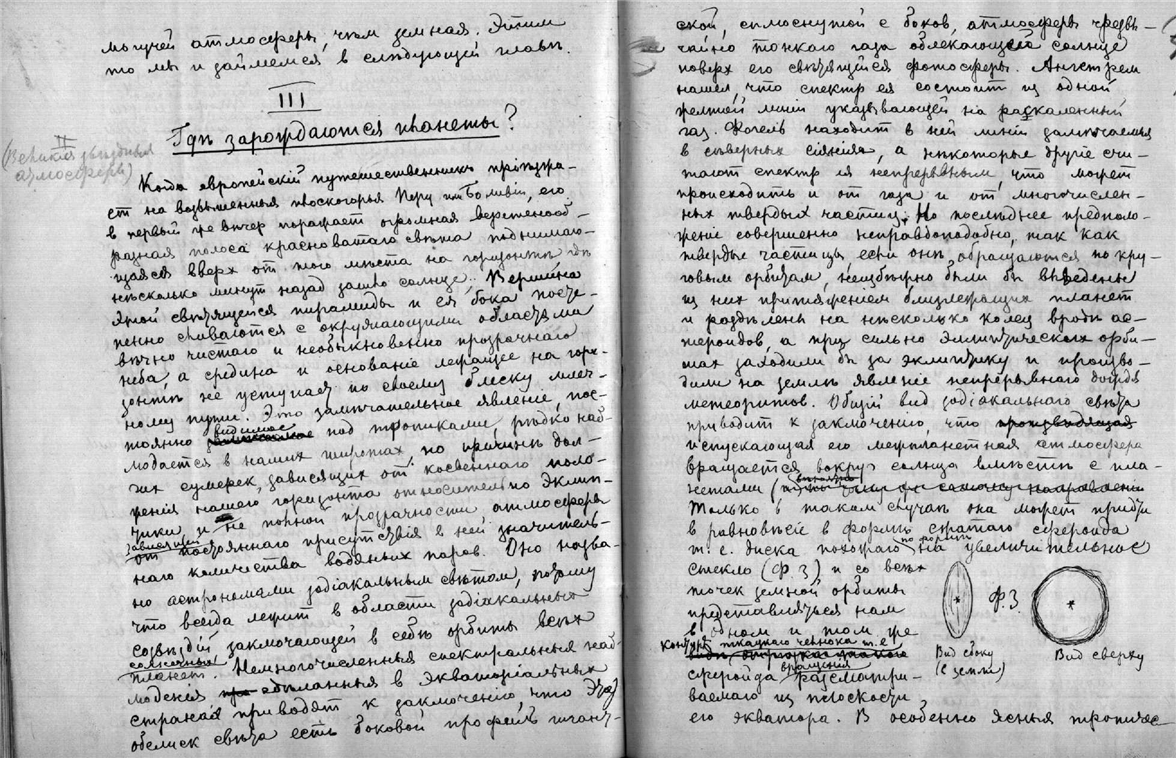 могучей атмосферы, чѣм земная. Этим
то мы и займемся в слѣдующей главѣ.
III
Гдѣ зарождаются планеты?
II
(Великія звѣздныя
атмосферы)
Когда европейскій путешественник пріѣзжа-
ет на возвышенныя плоскогорья Перу или Боливіи, его
в первый же вечер поражает огромная веретенооб-
разная полоса красноватаго свѣта поднимаю-
щаяся вверх от того мѣста на горизонтѣ гдѣ
нѣсколько минут назад зашло солнце. Вершина
этой свѣтящейся пирамиды и ея бока посте-
пенно сливаются с окружающими областями
вѣчно чистаго и необыкновенно прозрачнаго
неба, а средина и основаніе лежащее на гори-
зонтѣ не уступает по своему блеску млеч-
ному пути. Это замѣчательное явленіе, пос-
тоянно видимое под тропиками, рѣдко наб-
людается в наших широтах, по причинѣ дол-
гих сумерек, зависящих от косвеннаго поло-
женія нашего горизонта относительно эклип-
тики и не полной прозрачности атмосферы
зависящей
от постояннаго присутствія в ней значитель-
наго количества водяных паров. Оно назва-
но астрономами зодіакальным свѣтом, потому
что всегда лежит в области зодіакальных
созвѣздій, заключающей в себѣ орбиты всѣх
солнечных
планет. Немногочисленныя спектральныя наб-
люденія сдѣланныя в экваторіальных
странах приводят к заключенію что этот
обелиск свѣта есть боковой профиль гигант-
ской, сплюснутой с боков, атмосферы чрезвы-
чайно тонкаго газа облекающей солнце
поверх его свѣтящейся фотосферы. Ангстрем
нашел, что спектр ея состоит из одной
желтой линіи указывающей на раскаленный
газ. Фогель находит в ней линіи замѣчаемыя
в сѣверных сіяніях, а нѣкоторые другіе счи-
тают спектр ея непрерывным, что может
происходить и от газа и от многочислен-
ных твердых частиц. Но послѣднее предполо-
женіе совершенно неправдоподобно, так как
твердыя частицы если онѣ обращаются по кру-
говым орбитам, неизбѣжно были бы выведены
из них притяженіем близлежащих планет
и раздѣлены на нѣсколько колец вродѣ ас-
тероидов, а при сильно эллиптических орби-
тах заходили бы за эклиптику и произво-
дили на землѣ явленіе непрерывнаго дождя
метеоритов. Общій вид зодіакальнаго свѣта
приводит к заключенію, что производящая
испускающая его межпланетная атмосфера
вращается вокруг солнца вмѣстѣ с пла-
нетами
Только в таком случаѣ она может придти
в равновѣсіе в формѣ сжатаго сфероида
т. е. диска похожаго по формѣ на увеличительное
стекло (Ф. 3) и со всѣх
точек земной орбиты
представляться нам
в одном и том же
контурѣ ткацкаго челнока т. е.
вращенія
сфероида разсматри-
ваемаго из плоскости
его экватора. В особенно ясныя тропичес-
Ф. 3.
Вид сбоку
(с земли)
Вид сверху